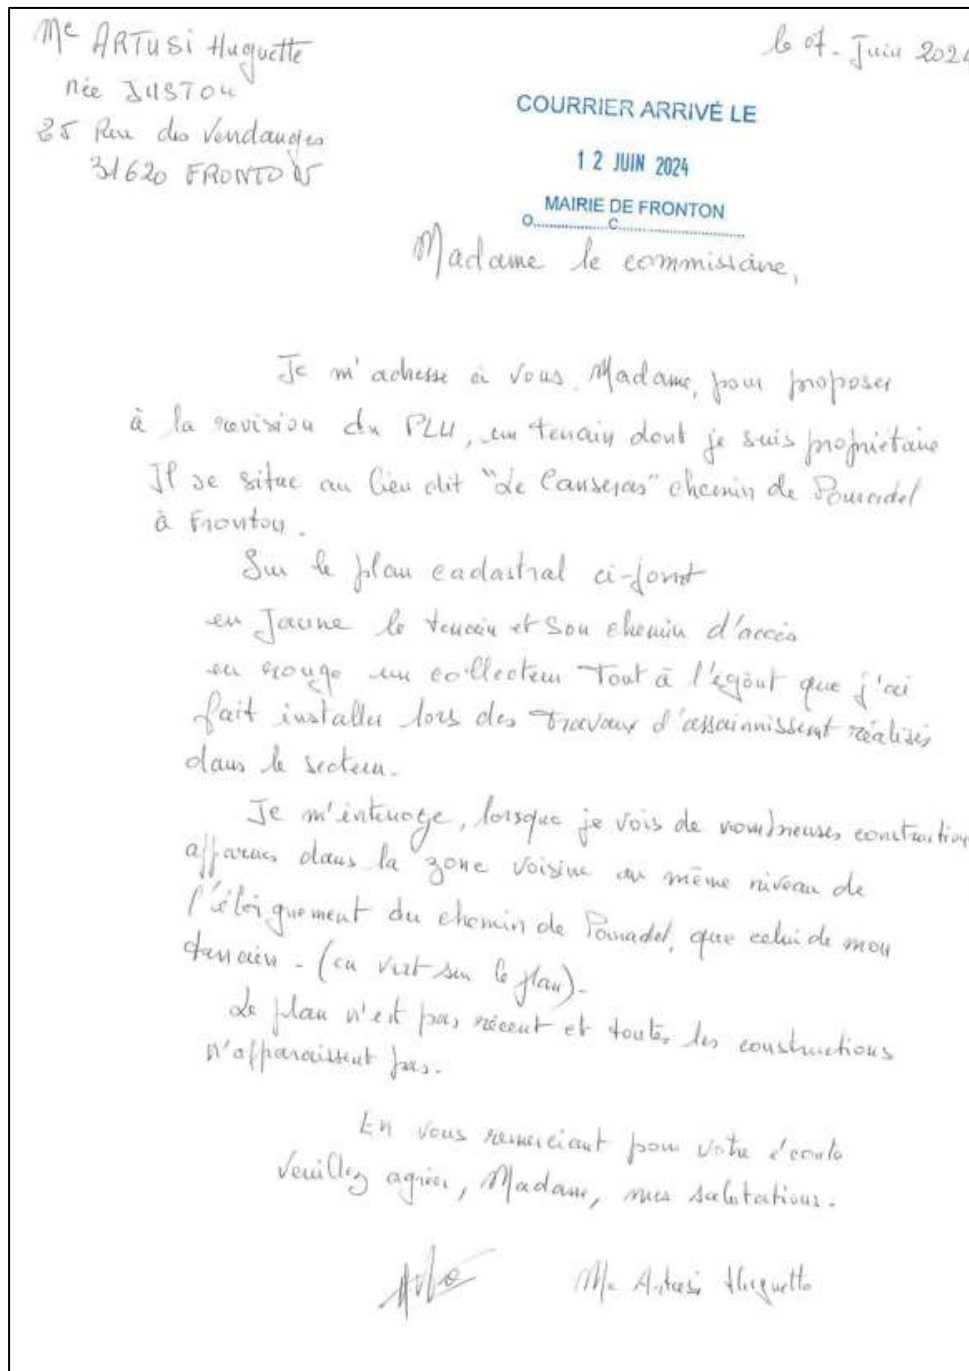 Me ARTUSI Huguette
le 07 - Juin 2024
née JUSTOU
25 Rue des Vendanges
31620 FRONTON
COURRIER ARRIVÉ LE
12 JUIN 2024
MAIRIE DE FRONTON
O C
Madame le commissaire,
Je m'adresse à vous, Madame, pour proposer
à la revision du PLU, un terrain dont je suis propriétaire
Il se situe au lieu dit "Le Canseras" chemin de Pouradel
à Fronton.
Sur le plan cadastral ci-joint
en Jaune le terrain et son chemin d'accès
en rouge un collecteur Tout à l'égout que j'ai
fait installer lors des travaux d'assainnissent réalisés
dans le secteur.
Je m'interroge, lorsque je vois de nombreuses constructions
apparues dans la zone voisine au même niveau de
l'éloignement du chemin de Pouradel, que celui de mon
terrain - (en vert sur le plan) -
Le plan n'est pas récent et toutes les constructions
n'apparaissent pas.
En vous remerciant pour votre écoute
Veuillez agréer, Madame, mes salutations.
Me Artusi Huguette